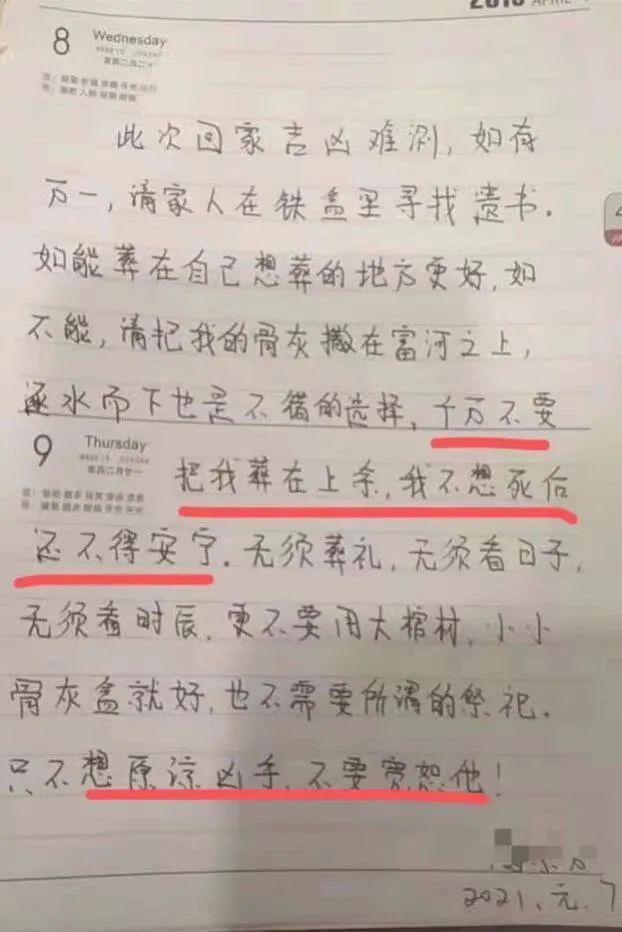 8 Wednesday
此次回家吉凶难测,如有
万一,请家人在铁盒里寻找遗书.
如能葬在自己想葬的地方更好,如
不能,请把我的骨灰撒在富河之上,
逐水而下也是不错的选择,千万不要
9 Thursday
把我葬在上余,我不想死后
还不得安宁.无须葬礼,无须看日子,
无须看时辰,更不要用大棺材,小小
骨灰盒就好,也不需要所谓的祭祀.
只不想原谅凶手,不要宽恕他!
2021.元.7